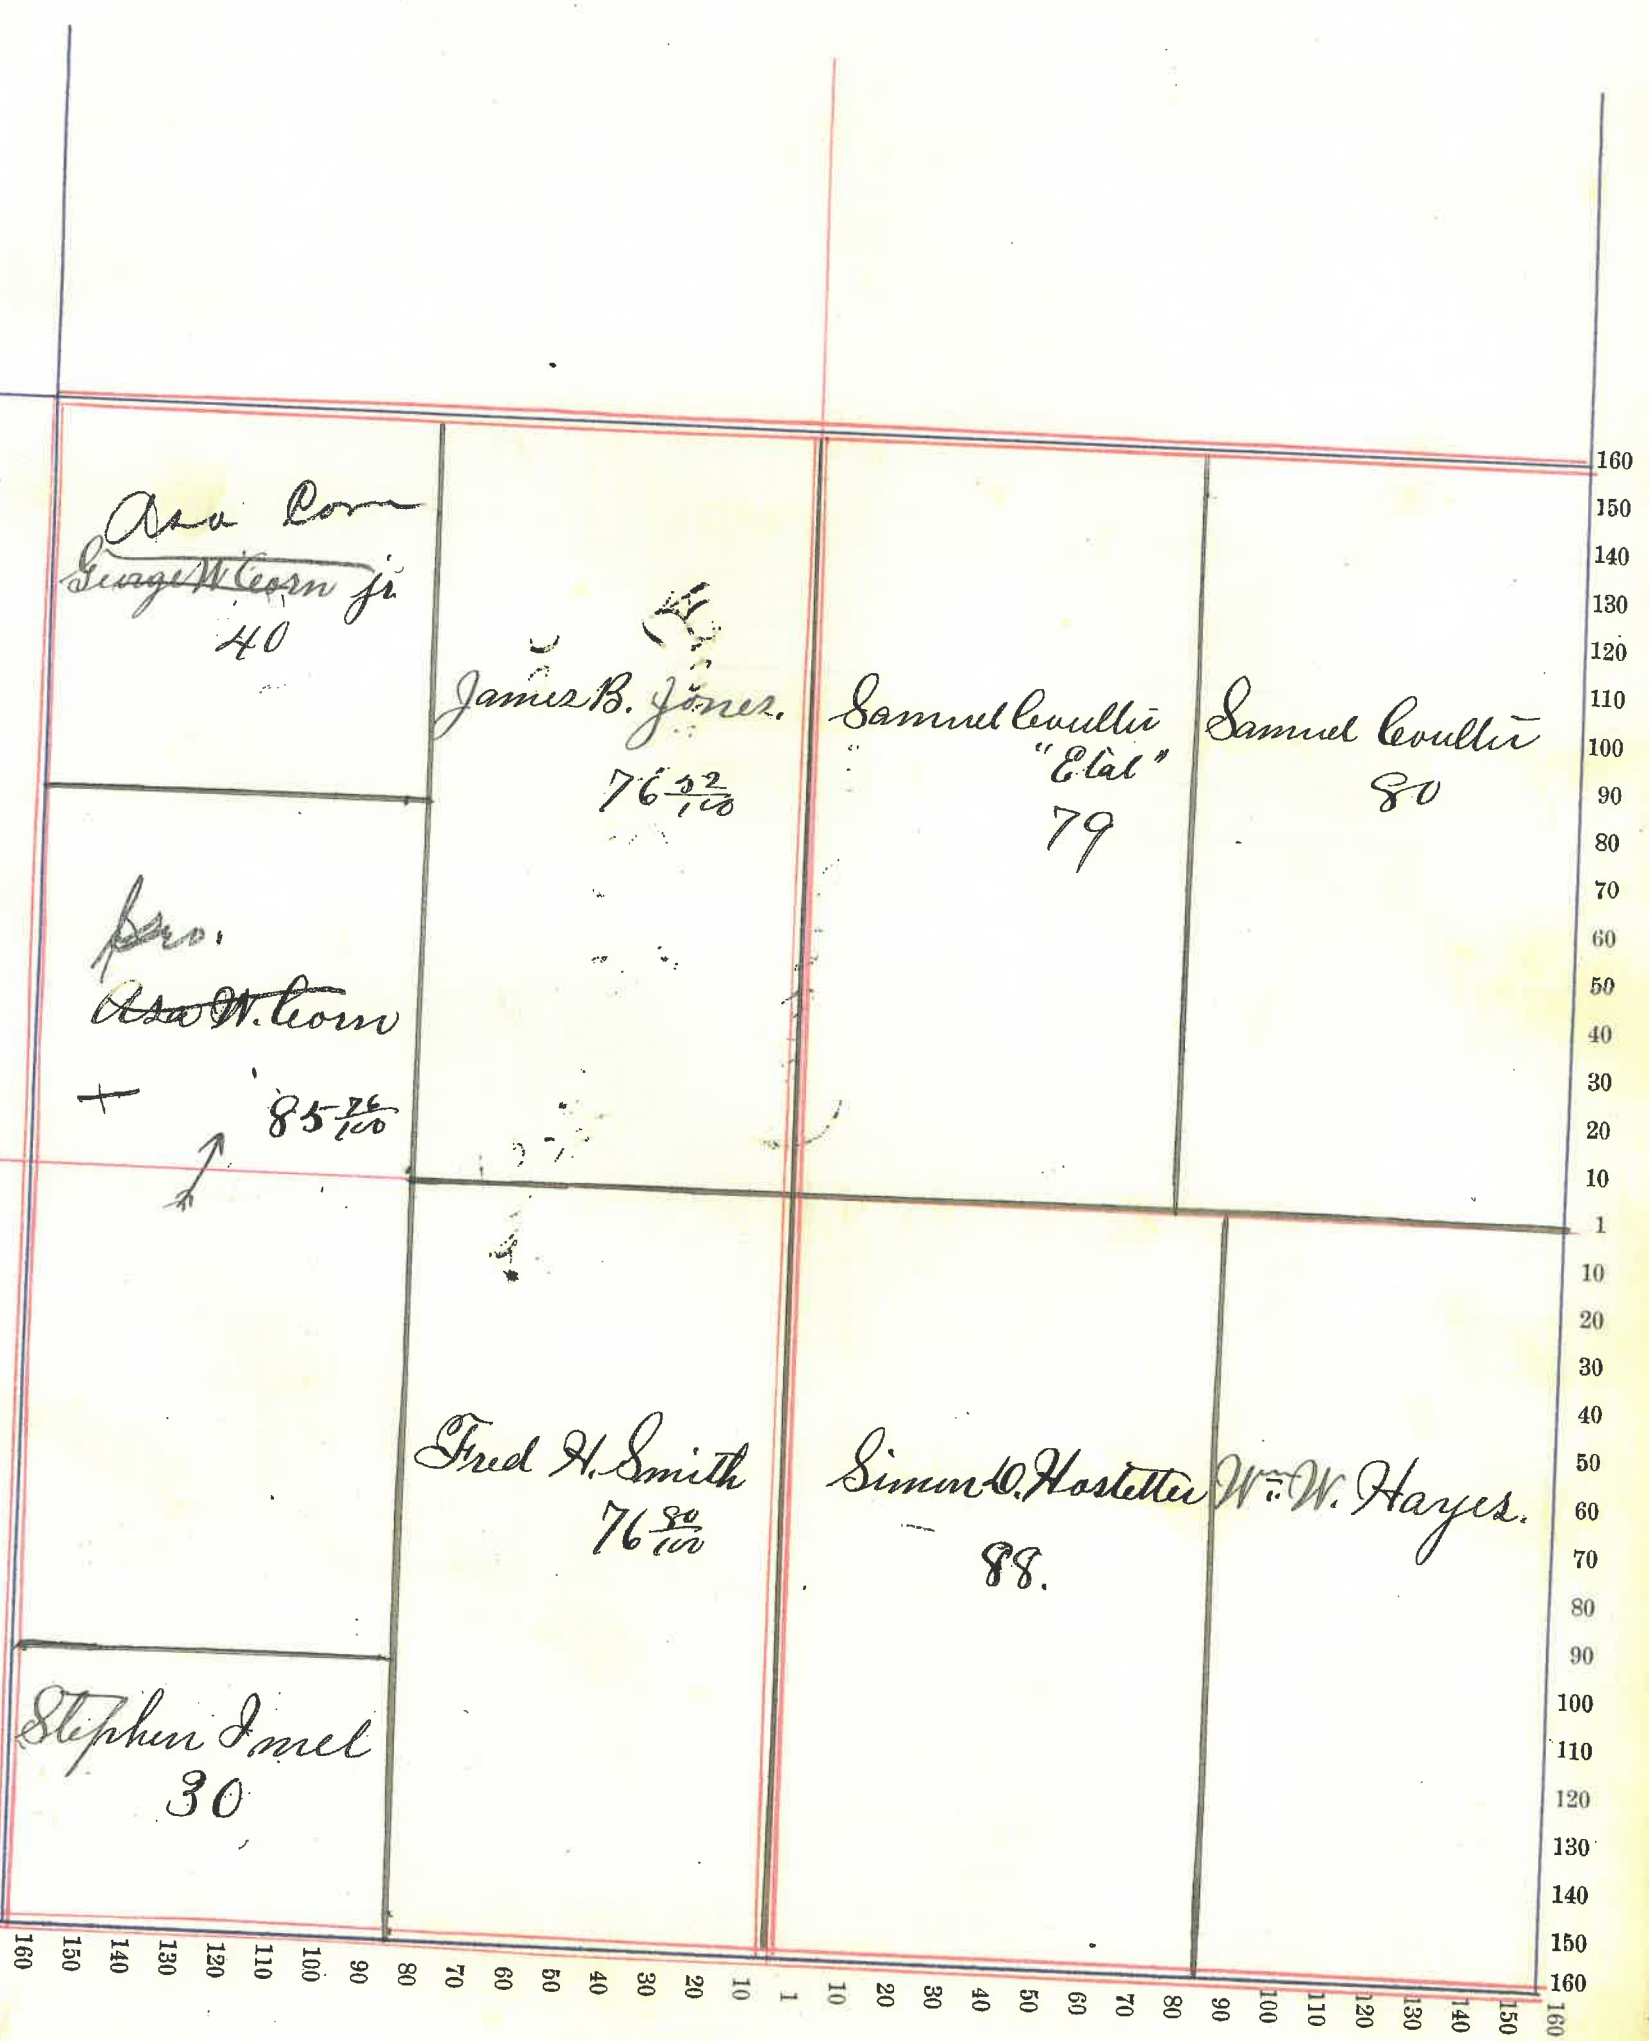 Asa Corn
George W Corn jr
40
James B. Jones.
76 52/100
Samuel Coulter
"Etal"
79
Samuel Coulter
80
Geo.
Asa W. Corn
+ 85 76/100
Fred H. Smith
76 80/100
Simon D. Hostetter
88.
Wm. W. Hayes.
Stephen Imel
30
160
150
140
130
120
110
100
90
80
70
60
50
40
30
20
10
1
10
20
30
40
50
60
70
80
90
100
110
120
130
140
150
160
160 150 140 130 120 110 100 90 80 70 60 50 40 30 20 10 1 10 20 30 40 50 60 70 80 90 100 110 120 130 140 150 160